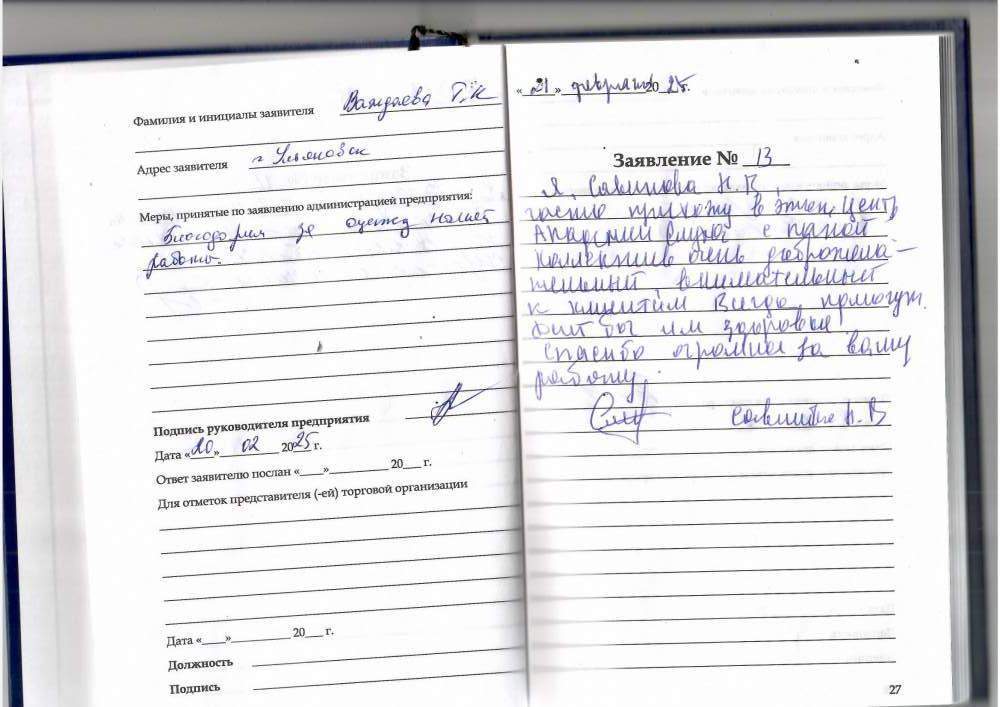 Фамилия и инициалы заявителя Вандаева Т.Н
Адрес заявителя г Ульяновск
Меры, принятые по заявлению администрацией предприятия:
Благодарим за оценку нашей
работы.
Подпись руководителя предприятия
Дата «20» 02 2025 г.
Ответ заявителю послан «___»__________ 20___ г.
Для отметок представителя (-ей) торговой организации
Дата «___»__________ 20___ г.
Должность
Подпись
«21» февраля 2025.
Заявление № 13
Я, Савинова Н.В,
часто прихожу в этот Центр
Академии Слуха с мамой
Коллектив очень доброжела-
тельный, внимательный
к клиентам Всегда помогут.
Дай бы им здоровья.
Спасибо огромное за вашу
работу.
Савинова Н.В
27